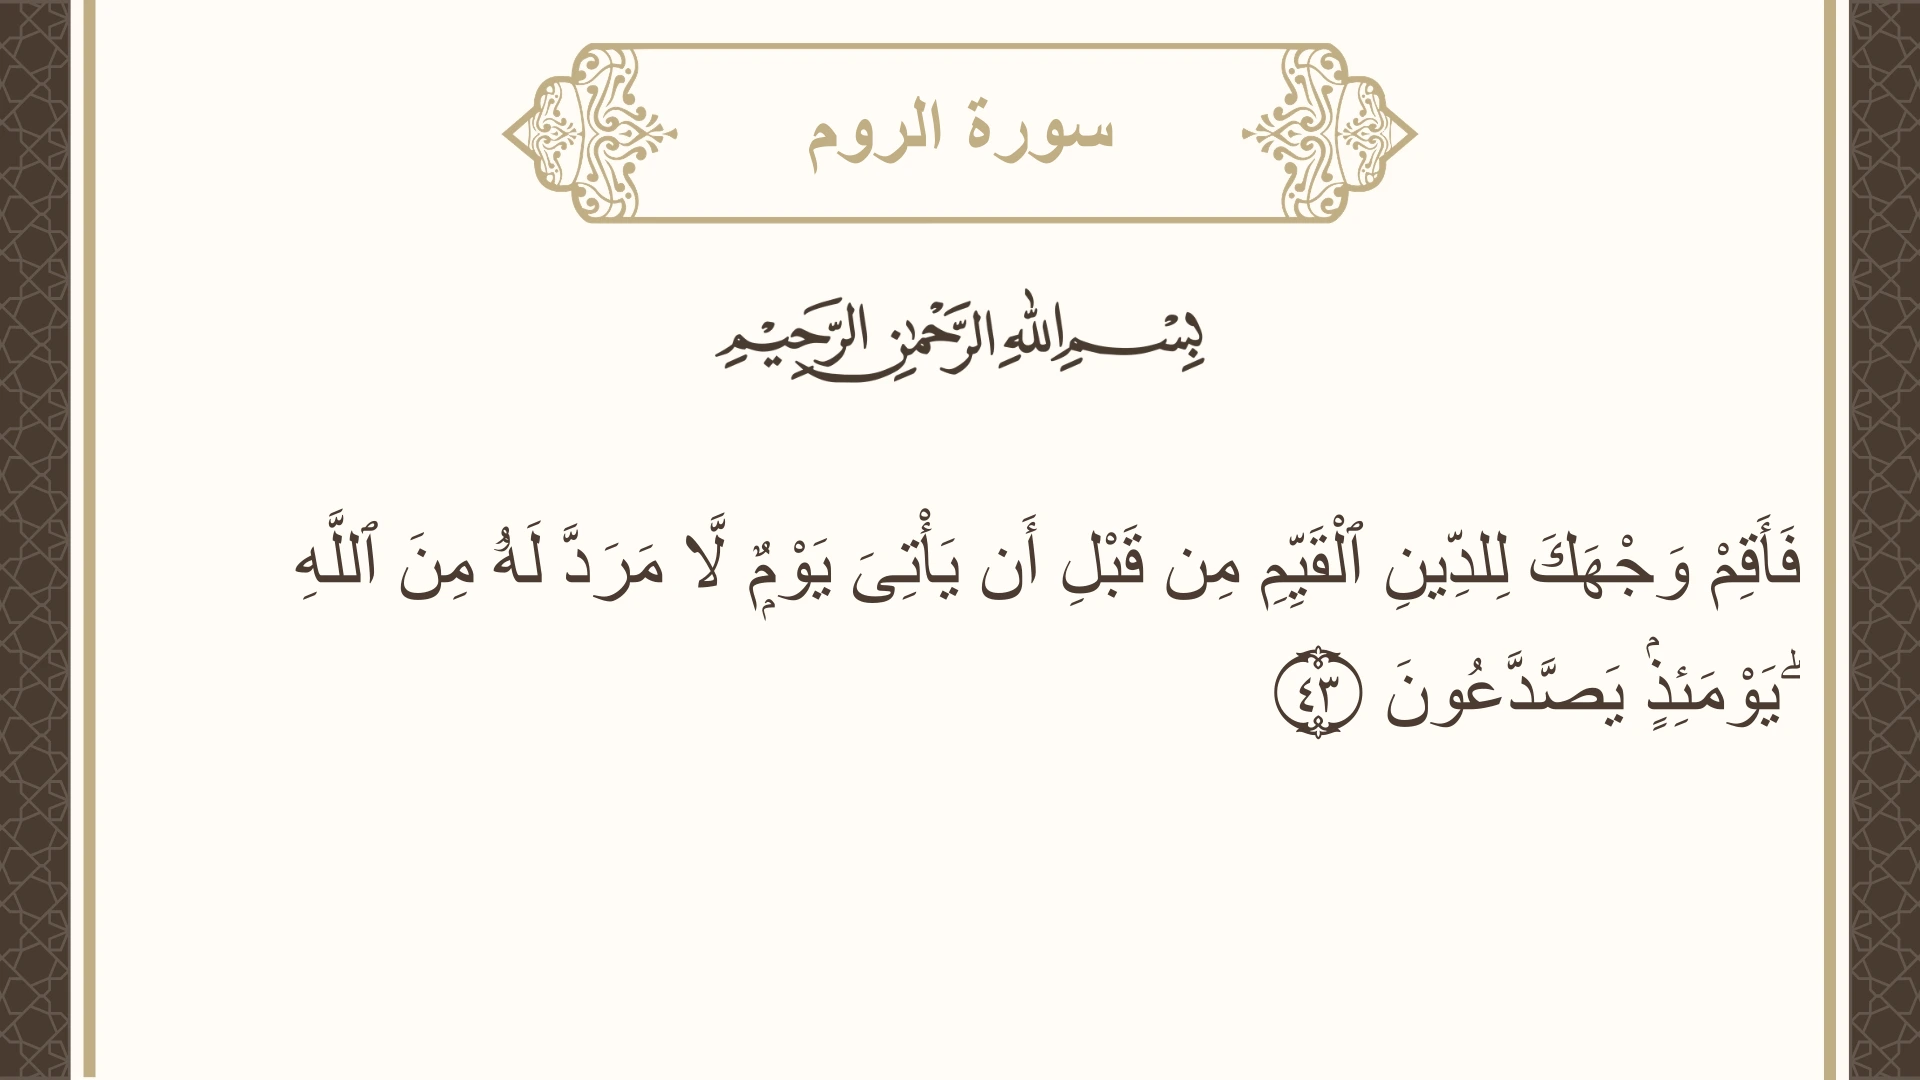 سورة الروم
بِسْمِ اللهِ الرَّحْمٰنِ الرَّحِيْمِ
فَأَقِمْ وَجْهَكَ لِلدِّينِ ٱلْقَيِّمِ مِن قَبْلِ أَن يَأْتِىَ يَوْمٌۭ لَّا مَرَدَّ لَهُۥ مِنَ ٱللَّهِ
ۖ يَوْمَئِذٍۢ يَصَّدَّعُونَ ٤٣